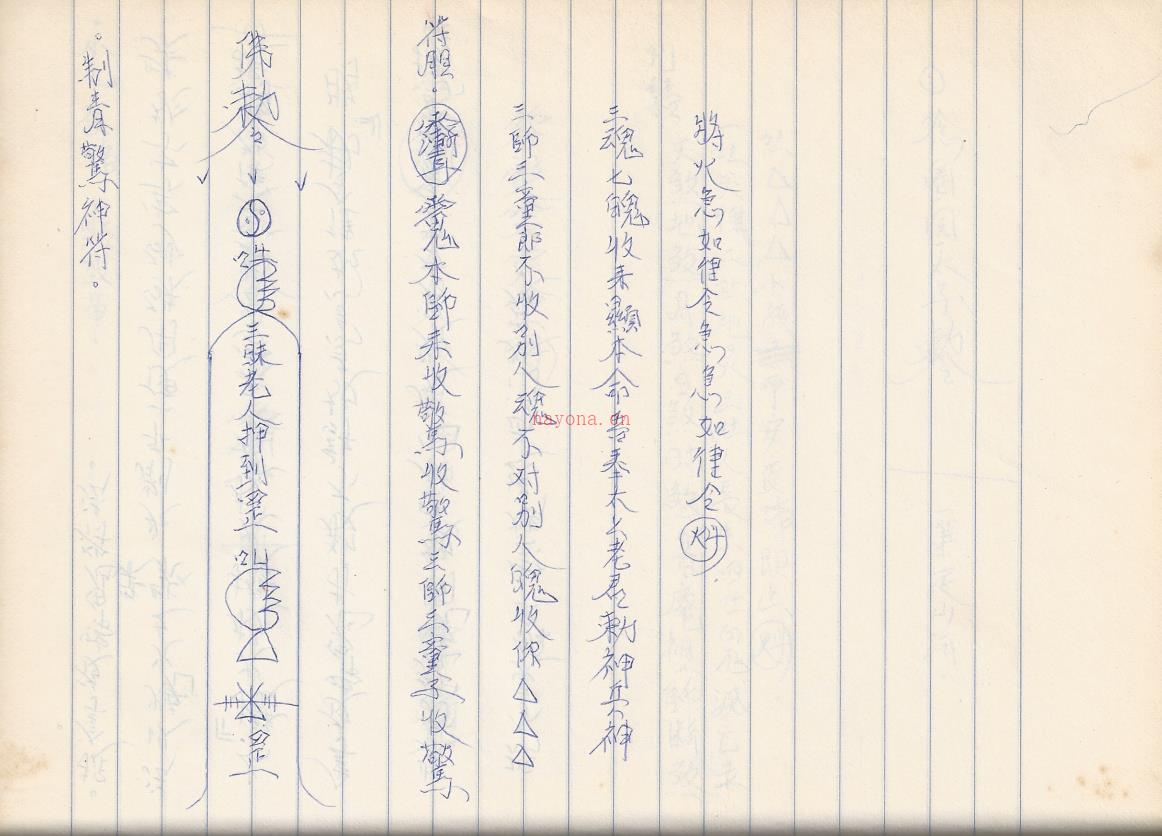 。制驚神符。
佛勅令
三昧老人押到罡
罡
符胆。本師来收驚收驚三師三童子收驚
三師三童郎不收別人魂不对別人魄收你△△△
三魂七魄收来本命吾奉太上老君勅神兵神
將火急如律令急急如律令
nayona.cn